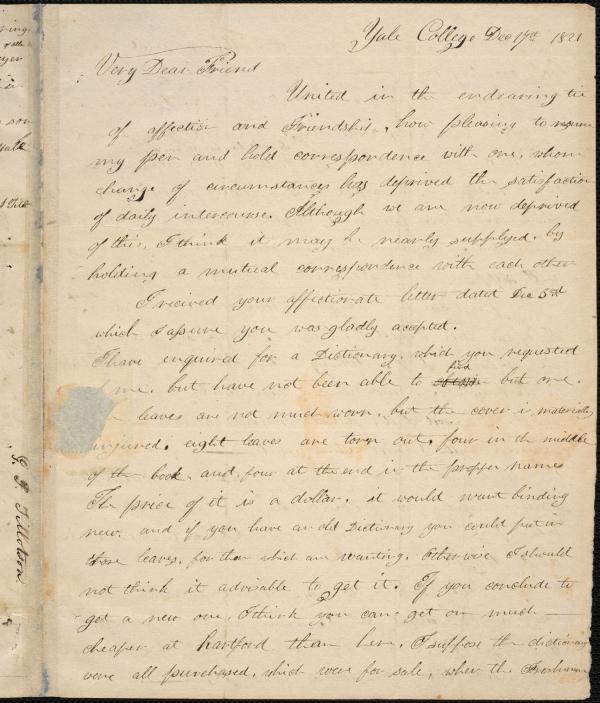 Yale College Dec 17th 1821
Very Dear Friend
United in the endearing tie
of affection and Friendship, how pleasing to resume
my pen and hold correspondence with one, whom
change of circumstances has deprived the satisfaction
of daily intercourse. Although we are now deprived
of this, I think it may be nearly supplyed, by
holding a mutual correspondence with each other
I recived your affectionate letter dated Dec 3rd
which I assure you was gladly accepted.
I have enquired for a Dictionary, which you requested
me, but have not been able to find but one.
leaves are not much worn, but the cover is materially
injured, eight leaves are torn out, four in the middle
of the book, and four at the end in the propper names
The price of it is a dollar, it would want binding
new, and if you have an old Dictionary you could put in
those leaves, for them which are wanting. Otherwise I should
not think it advisable to get it. If you conclude to
get a new one, I think you can get on much
cheaper at Hartford than here. I suppose the dictionary
were all purchased, which were for sale, when the Freshman
G. P. Tillotson.